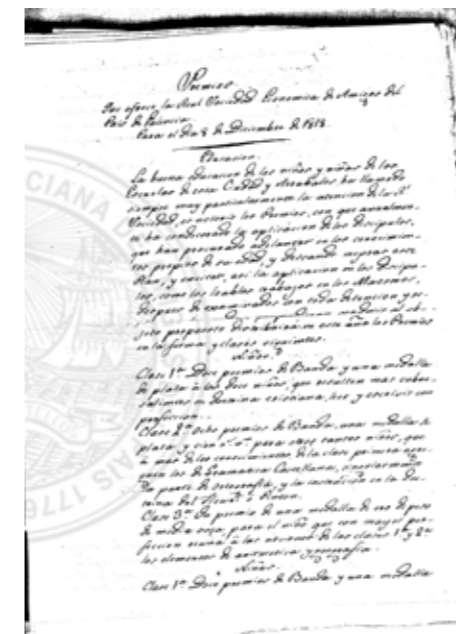 Premios
Que ofrece la Real Sociedad Economica de Amigos del
Pais de Valencia
Para el dia 8 de Diciembre de 1818.
Educacion.
La buena educacion de los niños y niñas de las
Escuelas de esta Ciudad y Arrabales, ha llamado
siempre muy particularmente la atencion de la Rl
Sociedad, es notorio los Premios, con que anualmen-
te ha la aplicacion de los discipulos,
que han procurado adelantar en los conocimien-
tos propios de su edad, y deseando mejorar este
Plan, y excitar, asi la aplicacion en los Discipu-
los, como los loables trabajos en los Maestros,
despues de con toda detencion y
ob-
jeto propuesto distribuirá en este año los Premios
en la forma y clases siguientes.
Niños.
Clase 1ª Doce premios de Banda y una medalla
de plata á los doce niños, que resulten mas sobre-
salientes en doctrina cristiana, leer y escrivir con
perfeccion.
Clase 2ª Ocho premios de Banda, una medalla de
plata y cien rs vn para otros tantos niños, que
á mas de los conocimientos de la clase primera
los de Gramatica Castellana,
la parte de ortografia, y la en la doc-
trina del
Clase 3ª Un premio de una medalla de oro de peso
de media onza, para el niño que con mayor per-
feccion reuna á las nociones de las clases 1ª y 2ª
los elementos de aritmetica y geografia.
Niñas.
Clase 1ª Doce premios de Banda y una medalla
CIANA D
PAIS 1776